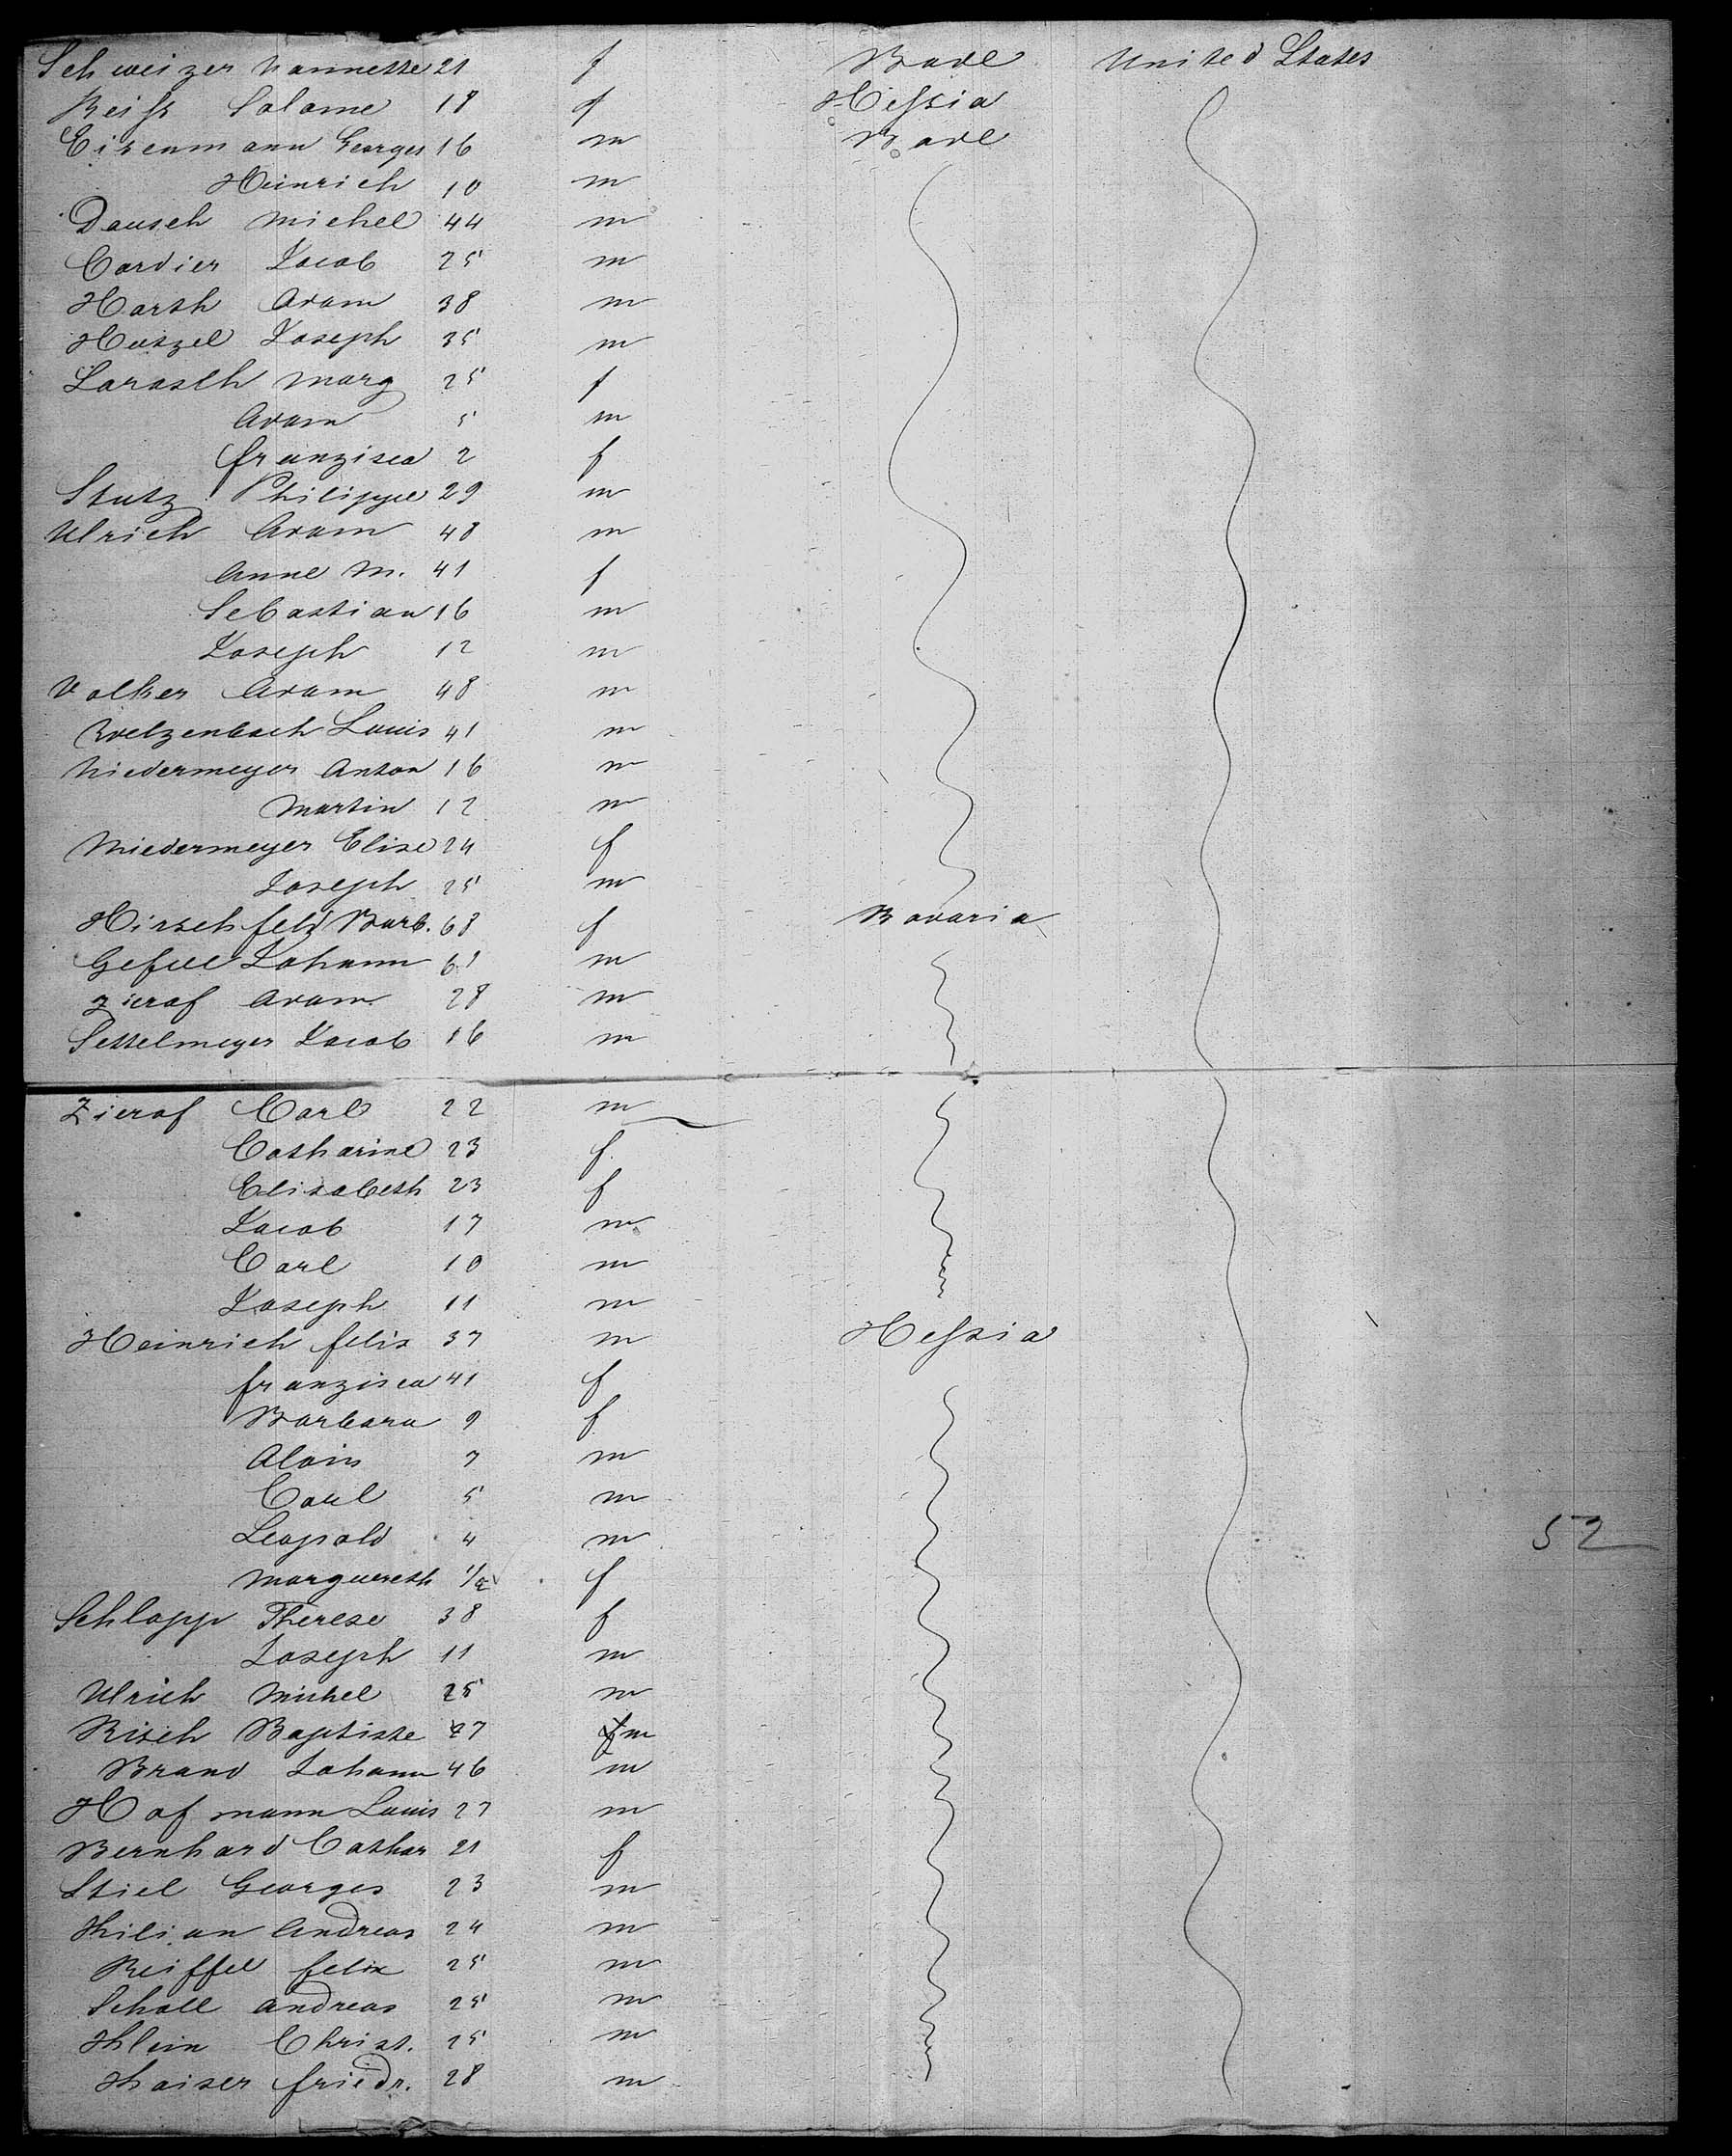 Schweizer Nannette 21 f Bade United States
Reiss Salome 18 f Hessia
Eisenmann Georges 16 m Bade
Heinrich 10 m
Dausch Michel 44 m
Cordier Jacob 25 m
Harth Adam 38 m
Hutzel Joseph 35 m
Marg 25 f
Adam 5 m
Franzisca 2 f
Stutz Philippe 29 m
Ulrich Adam 48 m
Anne M. 41 f
Sebastian 16 m
Joseph 12 m
Volker Adam 48 m
Welzenbach Louis 41 m
Niedermeyer Anton 16 m
Martin 12 m
Niedermeyer Elise 24 f
Joseph 25 m
Hirschfeld Barb. 68 f
Johann 61 m
Zieraf Adam 28 m
Settelmeyer Jacob 16 m Bavaria
Zieraf Carl 22 m
Catharine 23 f
Elisabeth 23 f
Jacob 17 m
Carl 10 m
Joseph 11 m
Heinrich Felix 37 m Hessia
Franzisca 41 f
Barbara 9 f
Alois 7 m
Carl 5 m
Leopold 4 m 52
Marguereth f
Schlapp Therese 38 f
Joseph 11 m
Ulrich Michel 25 m
Risch Baptiste 27 m
Brand Johann 46 m
Hofmann Louis 27 m
Bernhard Cathar 21 f
Stiel Georges 23 m
Kilian Andreas 24 m
Reiffel Felix 25 m
Scholl Andreas 25 m
Klein Christ. 25 m
Kaiser Friedr. 28 m